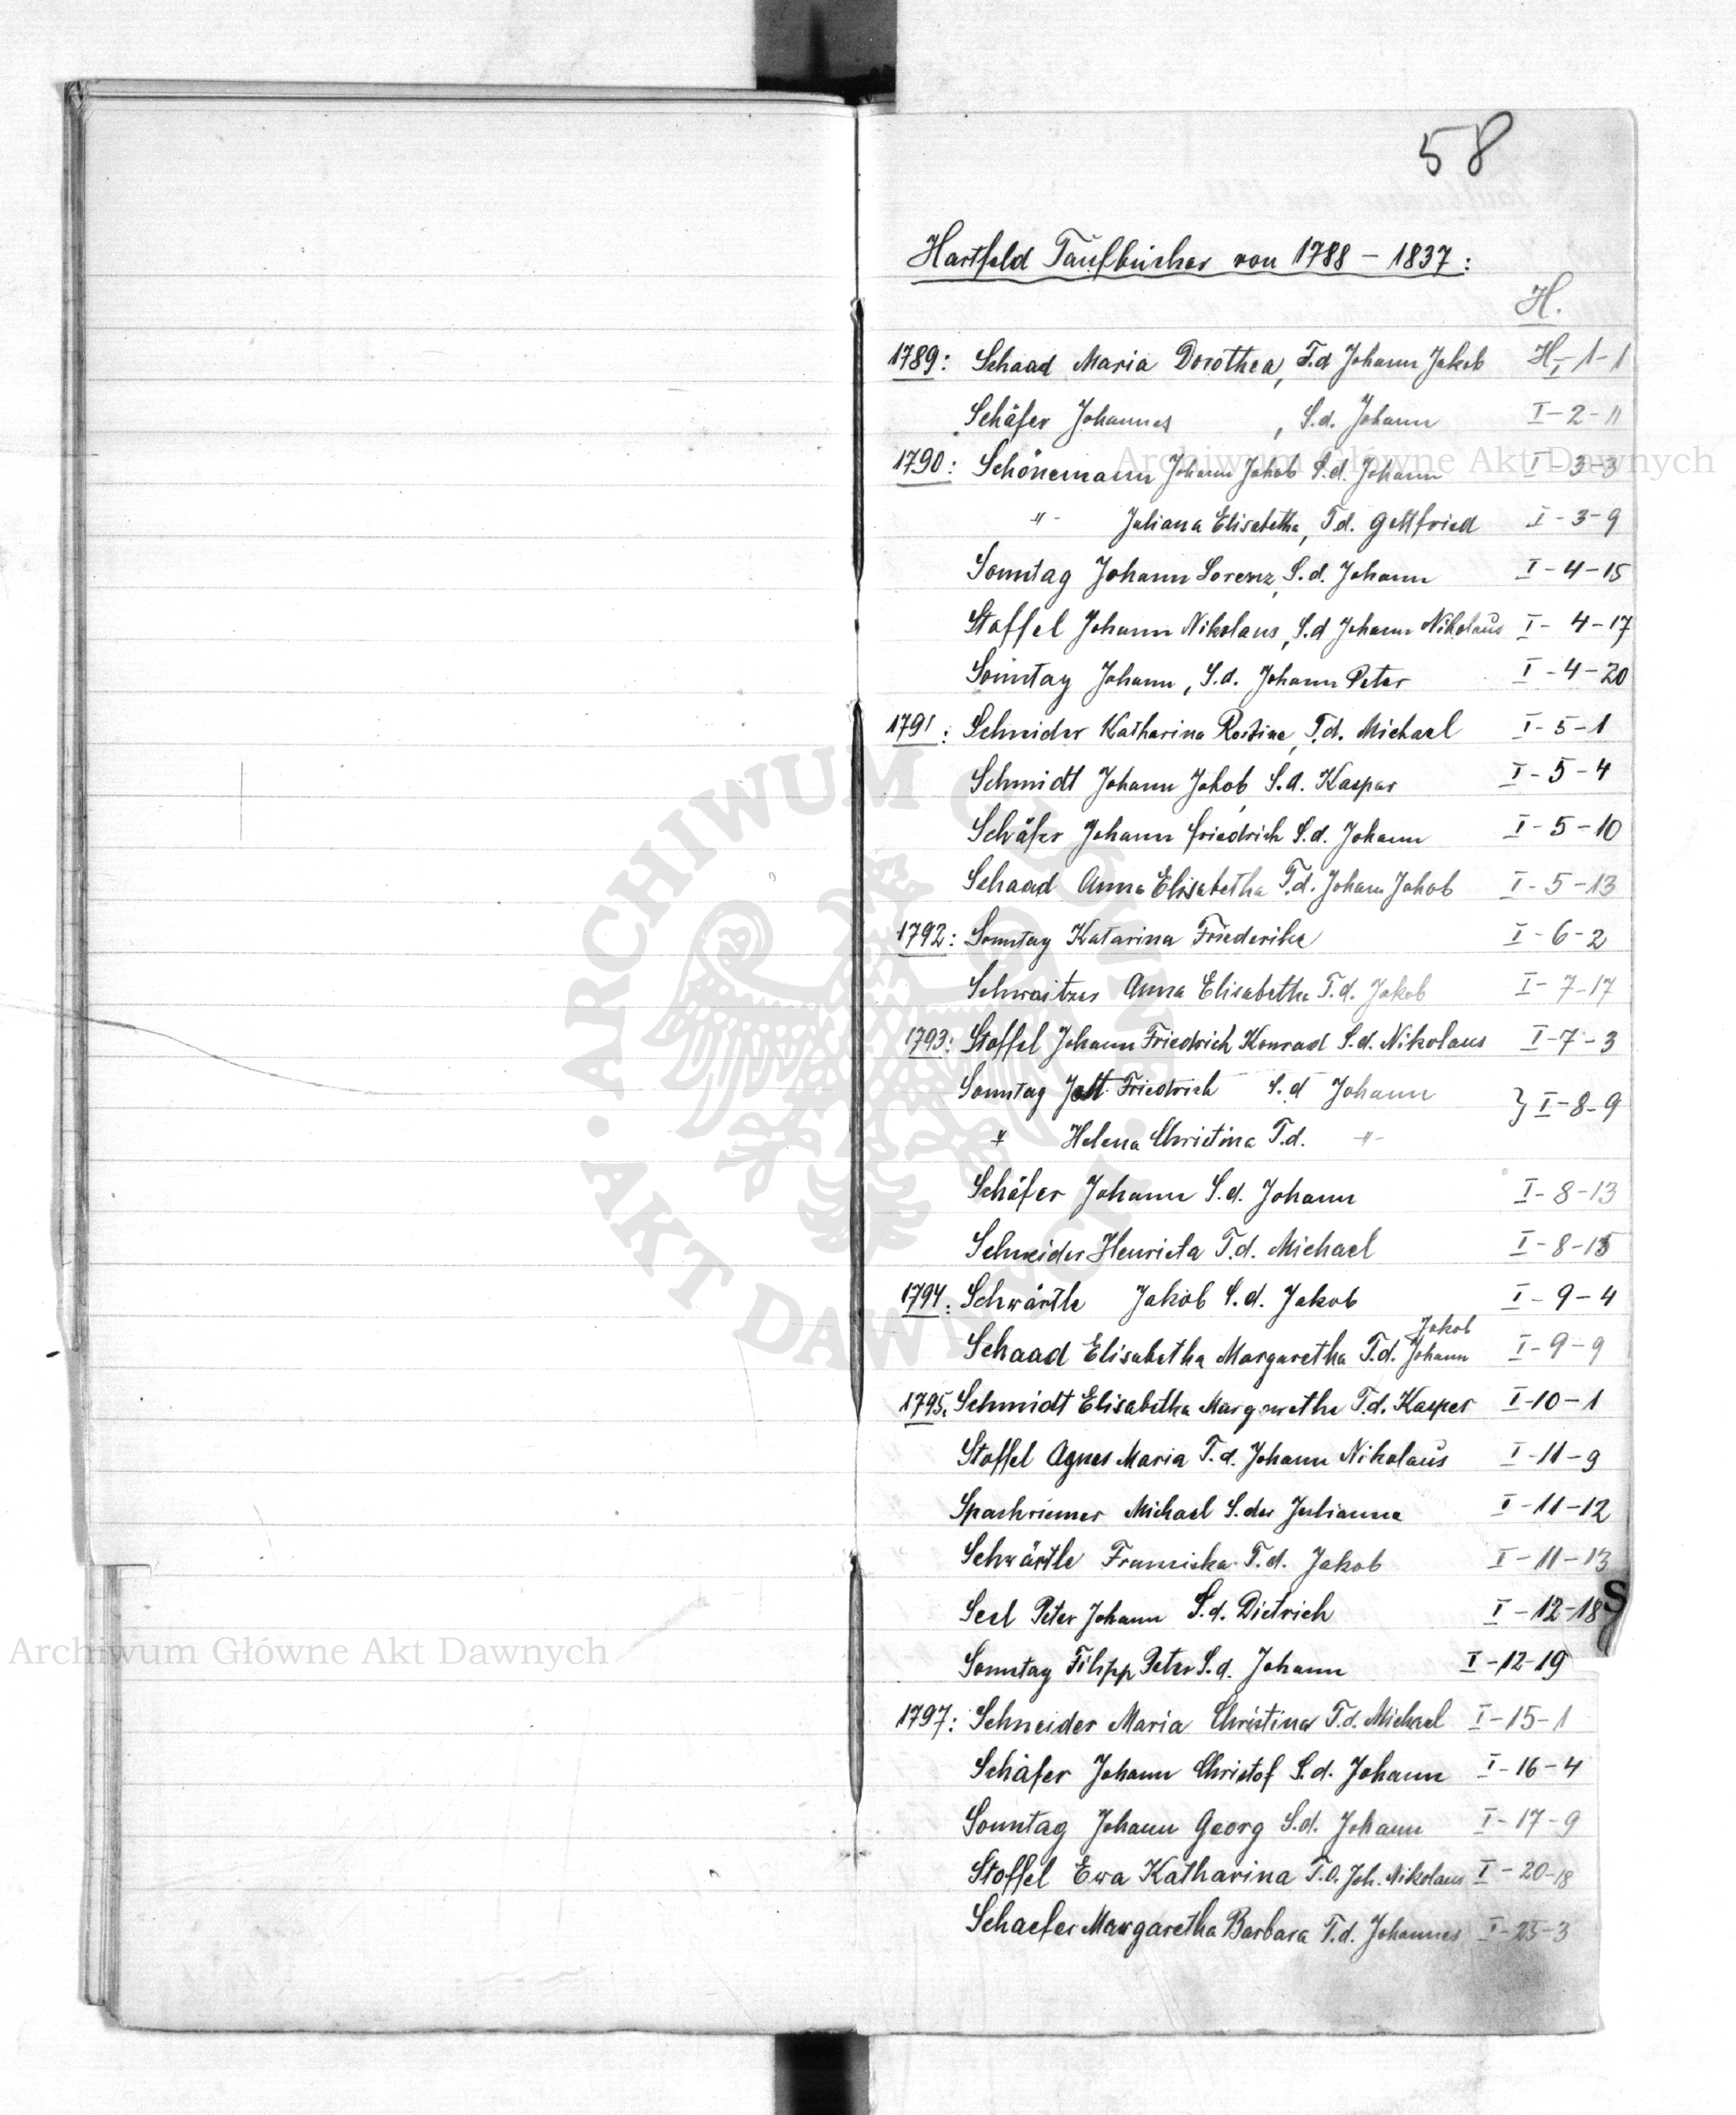 58
Hartfeld Taufbücher von 1788 - 1837 :
H.
1789: Schaad Maria Dorothea, T.d Johann Jakob H, I-1-1
Schäfer Johannes , S.d. Johann I-2-11
1790: Schönemann Johann Jakob S.d. Johann I-3-3
-"- Juliana Elisabetha, T.d. Gottfried I-3-9
Sonntag Johann Lorenz, S.d. Johann I-4-15
Stoffel Johann Nikolaus, S.d Johann Nikolaus I-4-17
Sonntag Johann, S.d. Johann Peter I-4-20
1791: Schneider Katharina Rosine, T.d. Michael I-5-1
Schmidt Johann Jakob, S.d. Kaspar I-5-4
Schäfer Johann Friedrich S.d. Johann I-5-10
Schaad Anna Elisabetha T.d. Johann Jakob I-5-13
1792: Sonntag Katarina Friederike I-6-2
Schwaitzer Anna Elisabetha T.d. Jakob I-7-17
1793: Stoffel Johann Friedrich Konrad S.d. Nikolaus I-7-3
Sonntag Friedrich S.d Johann } I-8-9
" Helena Christina T.d. -"-
Schäfer Johann S.d. Johann I-8-13
Schneider Henrieta T.d. Michael I-8-15
1794: Schwärtle Jakob S.d. Jakob I-9-4
Jakob
Schaad Elisabetha Margaretha T.d. Johann I-9-9
1795. Schmidt Elisabetha Margaretha T.d. Kasper I-10-1
Stoffel Agnes Maria T.d. Johann Nikolaus I-11-9
Michael S.der Julianna I-11-12
Schwärtle Franciska T.d. Jakob I-11-13
Seel Peter Johann S.d. Dietrich I-12-18
S
Sonntag Filipp Peter S.d. Johann I-12-19
1797: Schneider Maria Christina T.d. Michael I-15-1
Schäfer Johann Christof S.d. Johann I-16-4
Sonntag Johann Georg S.d. Johann I-17-9
Stoffel Ewa Katharina T.d. Joh. Nikolaus I-20-18
Schaefer Margaretha Barbara T.d. Johannes I-25-3
Archiwum Główne Akt Dawnych
Archiwum Główne Akt Dawnych
ARCHIWUM GŁÓWNE · AKT DAWNYCH ·